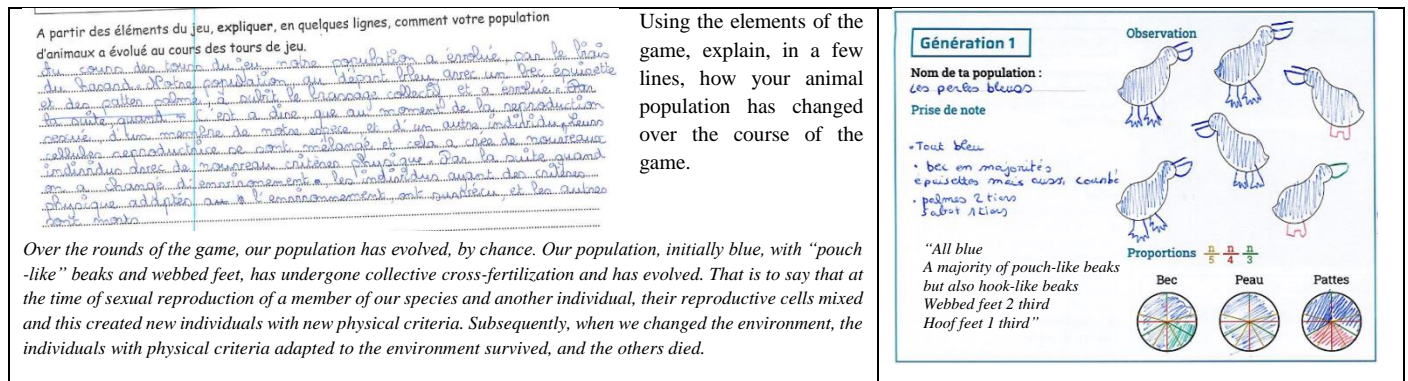 A partir des éléments du jeu, expliquer, en quelques lignes, comment votre population
d'animaux a évolué au cours des tours de jeu.
Au cours des tours du jeu, notre population a évolué, par le biais
du hasard. Notre population au départ bleu avec un bec épuisette
et des pattes palmé, a subit le brassage collectif et a évolué. Par
la suite, quand = c'est a dire que au moment de la reproduction
sexué d'un membre de notre espèce et d'un autre individu, leurs
cellules reproductrice se sont mélangé et cela a crée de nouveaux
individus avec de nouveau critères physique. Par la suite quand
on a changé d'environnement, les individus ayant des critères
physique adaptés au à l'environnement ont survécu, et les autres
sont morts
Using the elements of the
game, explain, in a few
lines, how your animal
population has changed
over the course of the
game.
Over the rounds of the game, our population has evolved, by chance. Our population, initially blue, with “pouch
-like” beaks and webbed feet, has undergone collective cross-fertilization and has evolved. That is to say that at
the time of sexual reproduction of a member of our species and another individual, their reproductive cells mixed
and this created new individuals with new physical criteria. Subsequently, when we changed the environment, the
individuals with physical criteria adapted to the environment survived, and the others died.
Génération 1
Observation
Nom de ta population :
Les perles bleues
Prise de note
• Tout bleu
• bec en majorités
épuisettes mais aussi courbé
• palmes 2 tiers
sabot 1 tiers
“All blue
A majority of pouch-like beaks
but also hook-like beaks
Webbed feet 2 third
Hoof feet 1 third”
Proportions n/5 n/4 n/3
Bec Peau Pattes